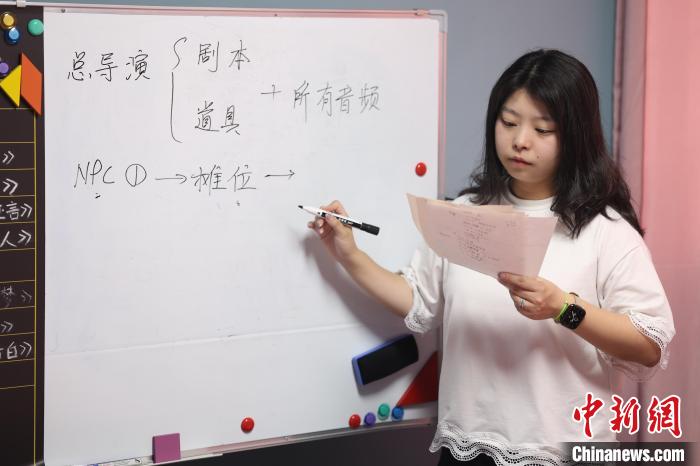 总导演 { 剧本
道具 + 所有音频
NPC ① → 摊位 →
》
》
言》
人》
梦》
》
白》
中新网
Chinanews.com